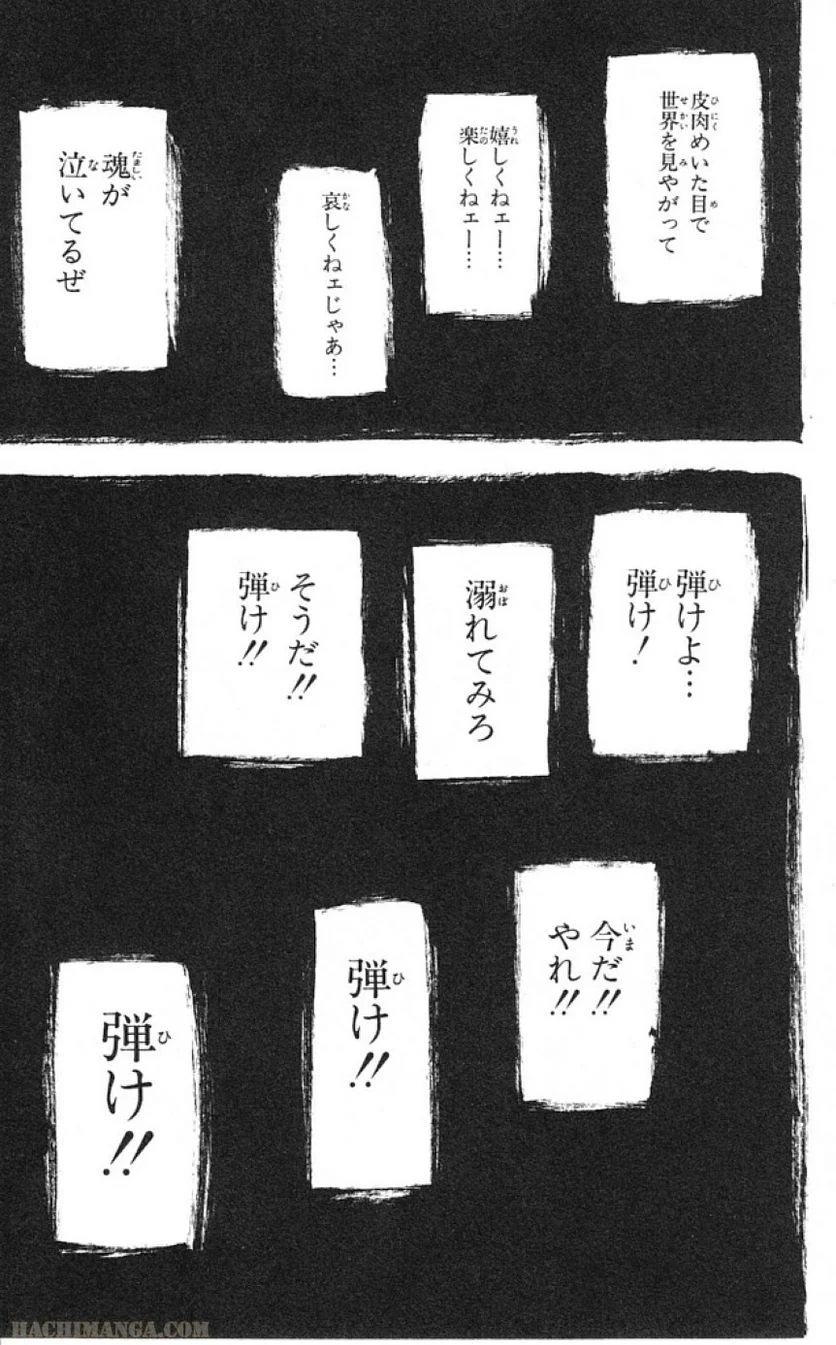 皮肉めいた目で
世界を見やがって
嬉しくねェー…
楽しくねェー…
哀しくねェじゃあ…
魂が
泣いてるぜ
弾けよ…
弾け!
溺れてみろ
そうだ!!
弾け!!
今だ!!
やれ!!
弾け!!
弾け!!
HACHIMANGA.COM